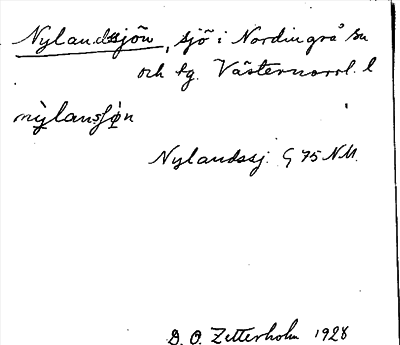 Nylandssjön, sjö i Nordingrå sn
och tg. Västernorrl. l
nỳlanʂʃø̣n
Nylandssj. G 75 NV.
D. O. Zetterholm 1928